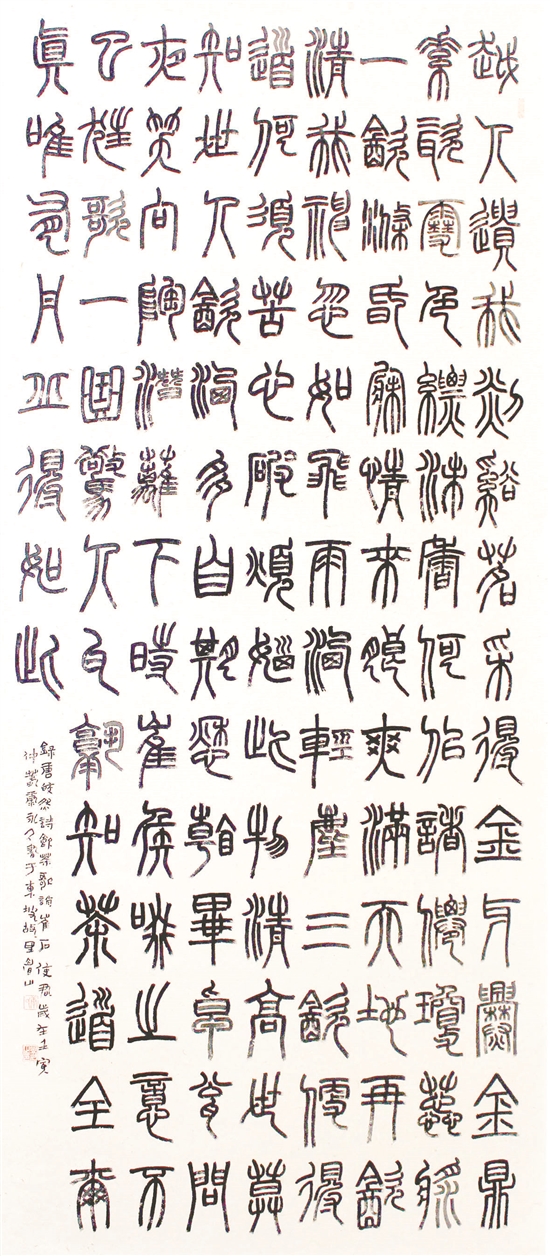 越人遺我剡谿茗采得金牙爨金鼎
素瓷雪色縹沫香何似諸僊瓊蕊漿
一飲滌昏寐情來朗爽滿天地再飲
清我神忽如飛雨灑輕塵三飲便得
道何須苦心破煩惱此物清高世莫
知世人飲酒多自欺愁看畢卓甕間
夜笑向陶潛籬下時崔侯啜之意不
已狂歌一曲驚人耳孰知茶道全爾
真唯有丹丘得如此
錄唐皎然詩飲茶歌誚崔石使君歲在壬寅
仲書于東坡故里眉山